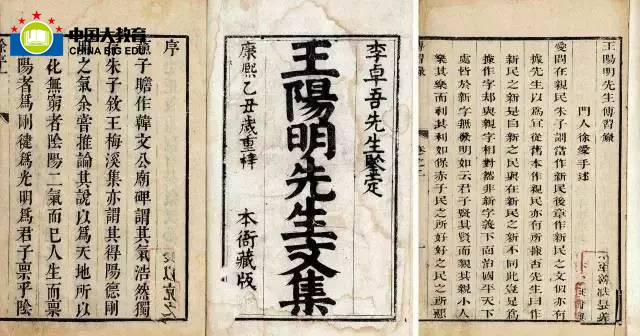 中国大教育
CHINA BIG EDU
王陽明先生傳習錄
門人徐愛手述
愛問在親民朱子謂當作新民後章作新民之文似亦有
據先生以為宜從舊本作親民亦有所據否先生曰作
新民之新是自新之民與在新民之新不同此豈足為
據作字却與親字相對然非新字義下面治國平天下
處皆於新字無發明如云君子賢其賢而親其親小人
樂其樂而利其利如保赤子民之所好好之民之所惡
傳習錄
李卓吾先生鑒定
王陽明先生文集
康熙乙丑歲重鐫
本衙藏版
序
子瞻作韓文公廟碑謂其氣浩然獨
朱子敘王梅溪集亦謂其得陽德剛
之氣余嘗推論其說以為天地所以
化無窮者陰陽二氣而已人生而稟
陽者為剛健為光明為君子稟乎陰